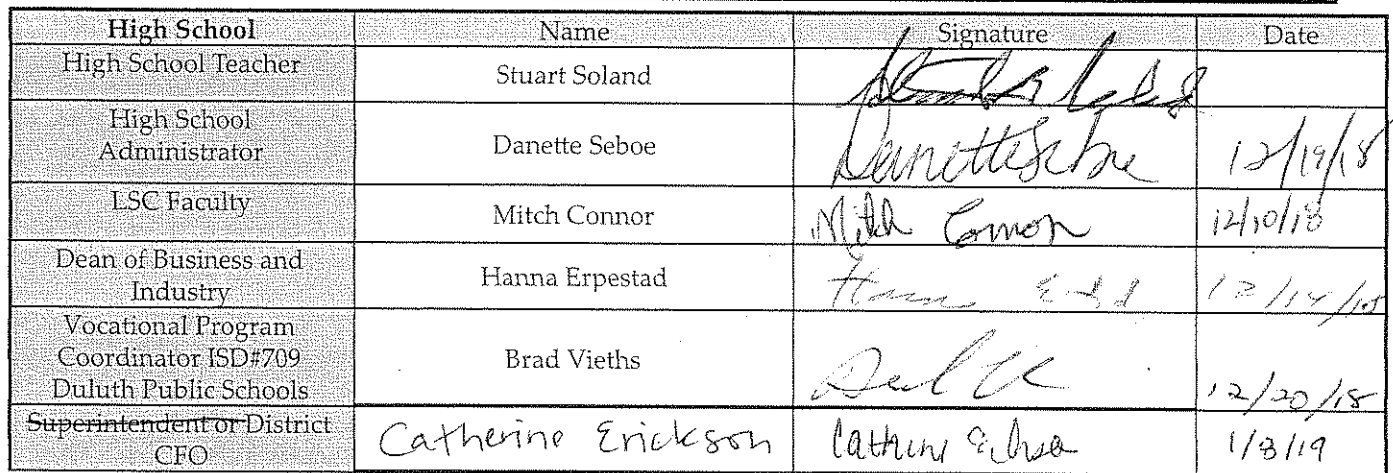 High School Name Signature Date
High School Teacher Stuart Soland
High School
Administrator Danette Seboe Danette Seboe 12/19/18
LSC Faculty Mitch Connor Mitch Connor 12/10/18
Dean of Business and
Industry Hanna Erpestad 12/14/18
Vocational Program
Coordinator ISD#709
Duluth Public Schools Brad Vieths 12/20/18
Superintendent or District
CFO Catherine Erickson 1/8/19